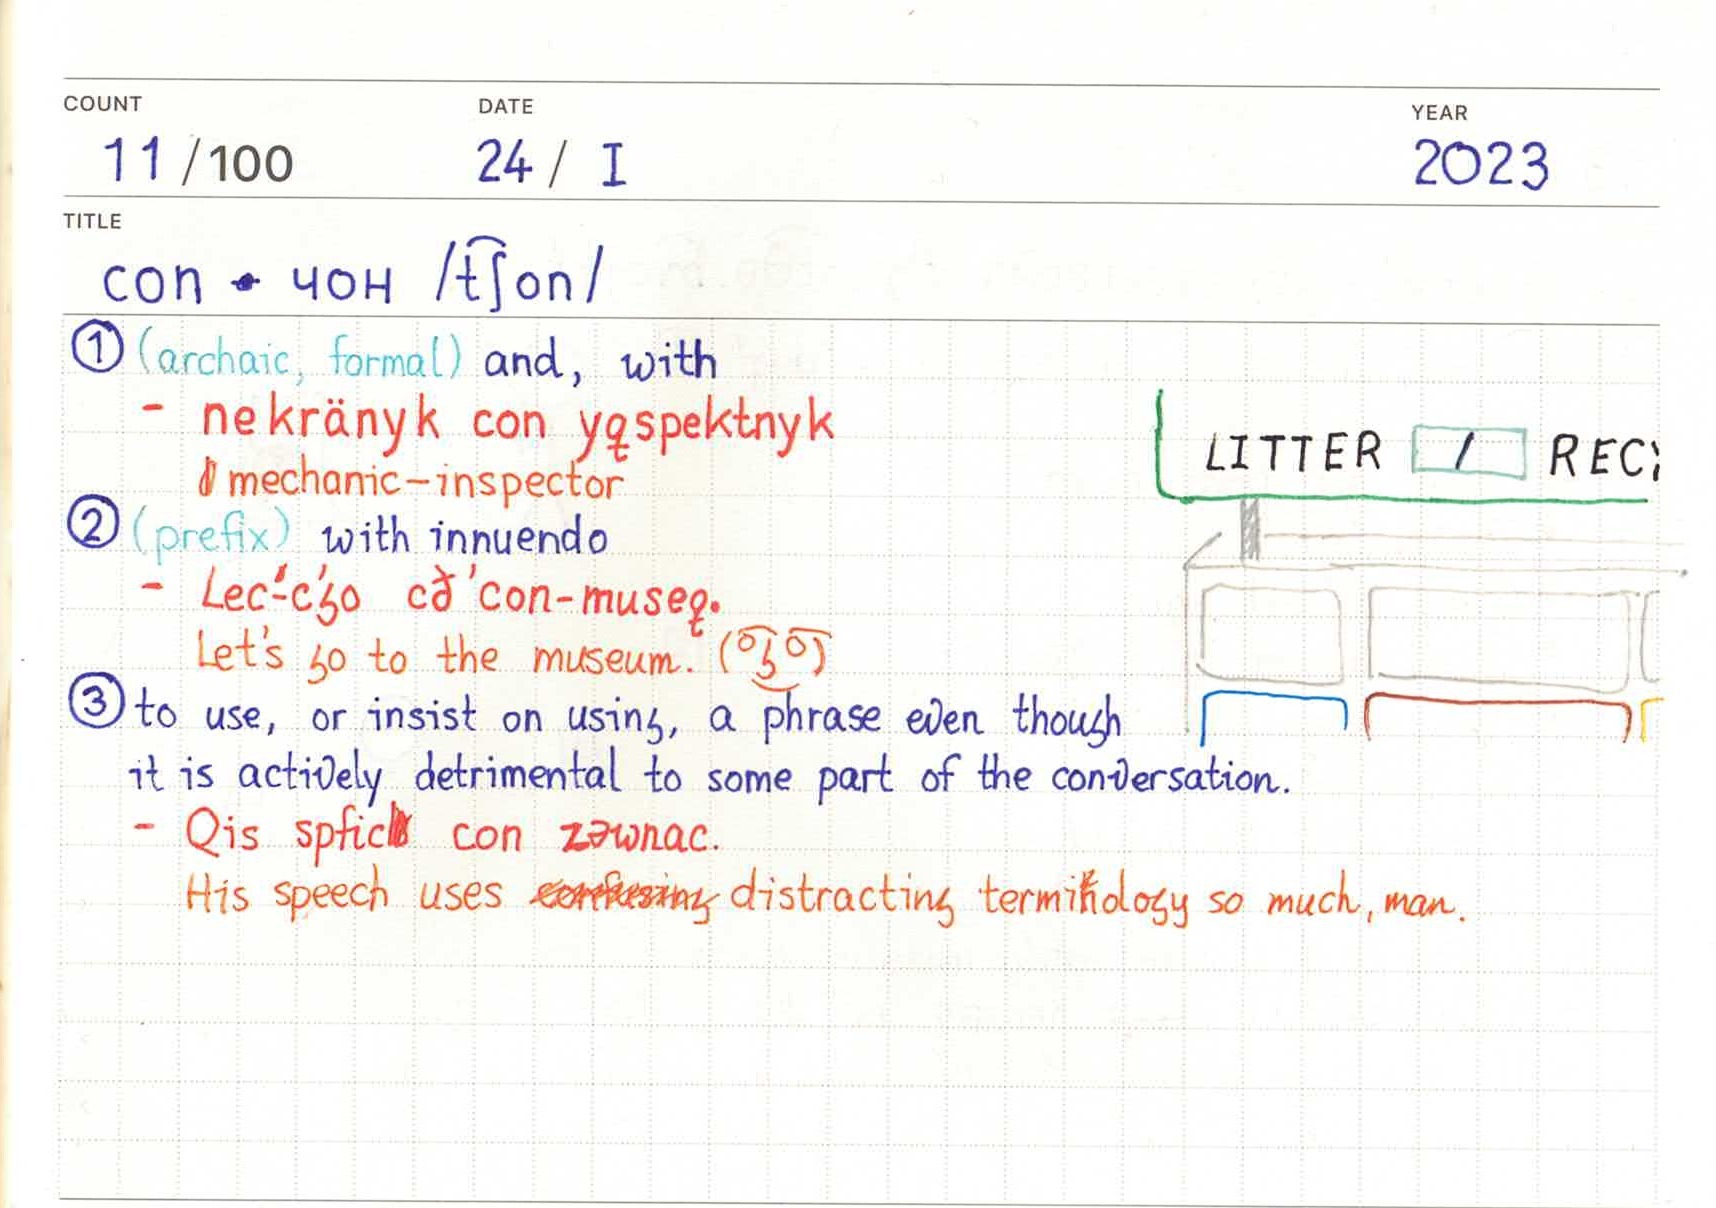 COUNT DATE YEAR
11 /100 24 / I 2023
TITLE
con • чон /t͡ʃon/
① (archaic, formal) and, with
- nekränyk con yq̨spektnyk
mechanic-inspector
② (prefix) with innuendo
- Lec'-c'ʒo cð 'con-museq̨.
Let's go to the museum. (͡° ͜ʖ ͡°)
LITTER / REC
③ to use, or insist on using, a phrase even though
it is actively detrimental to some part of the conversation.
- Qis spfic con zəwnac.
His speech uses confusing distracting terminology so much, man.